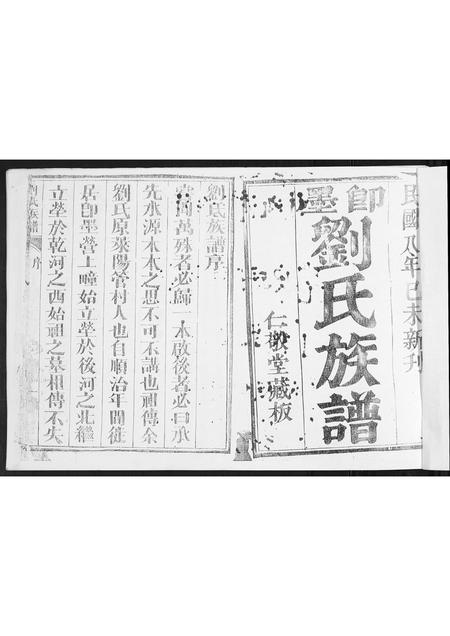 民國八年己未新刊
即墨
劉氏族譜
仁敬堂藏板
劉氏族譜序
嘗聞萬殊者必歸一本啟後者必曰承
先水源木本之思不可不講也祖傳余
劉氏原萊陽管村人也自順治年間徙
居即墨營上疃始立塋於後河之北繼
立塋於乾河之西始祖之墓相傳不失
劉氏族譜
序